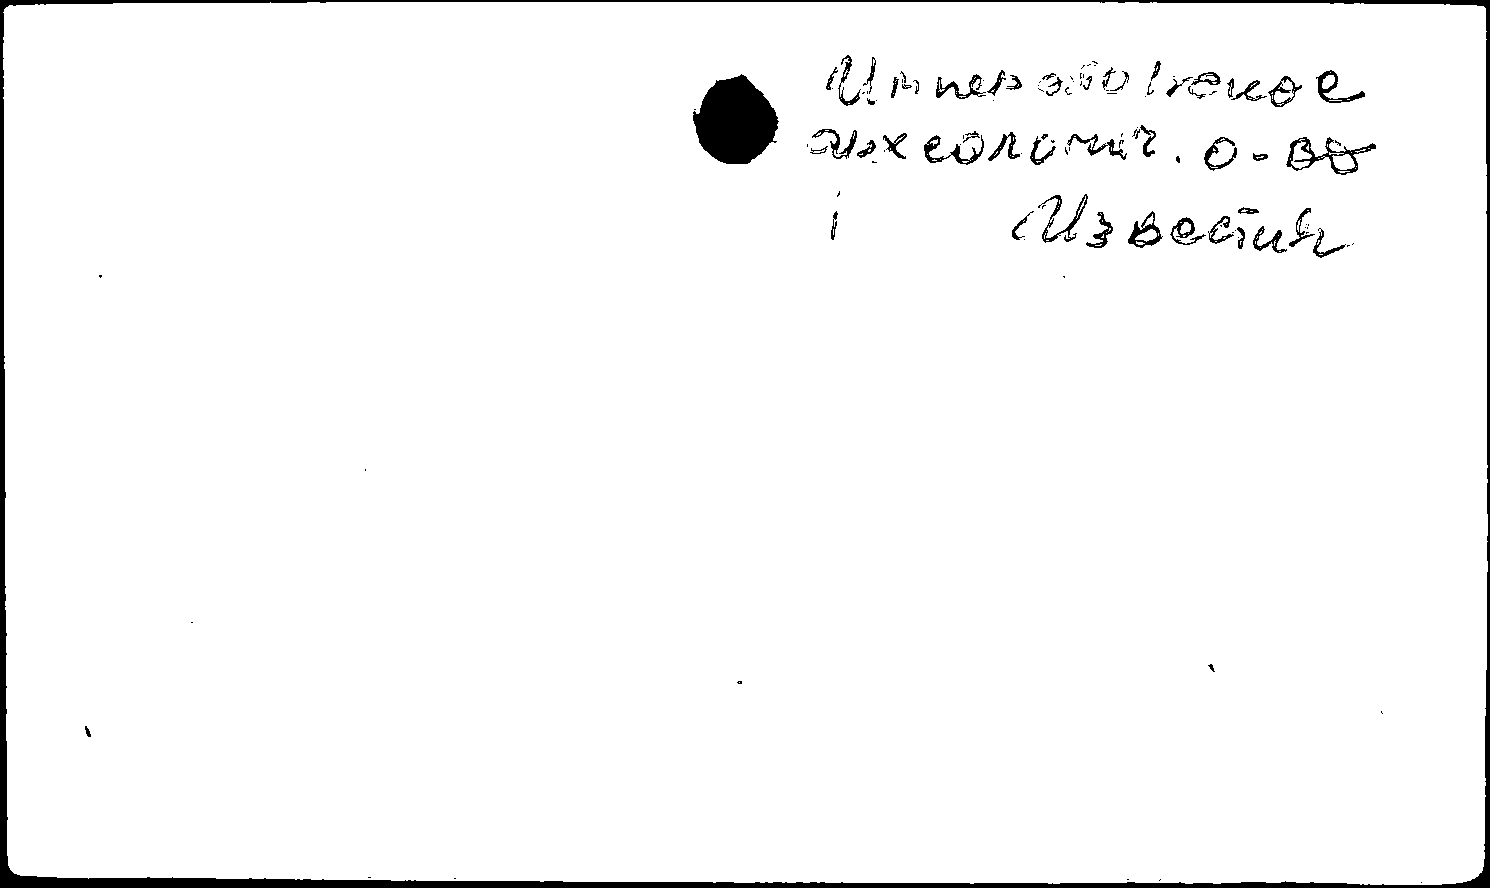 Императорское
археологич. о-во
Известия